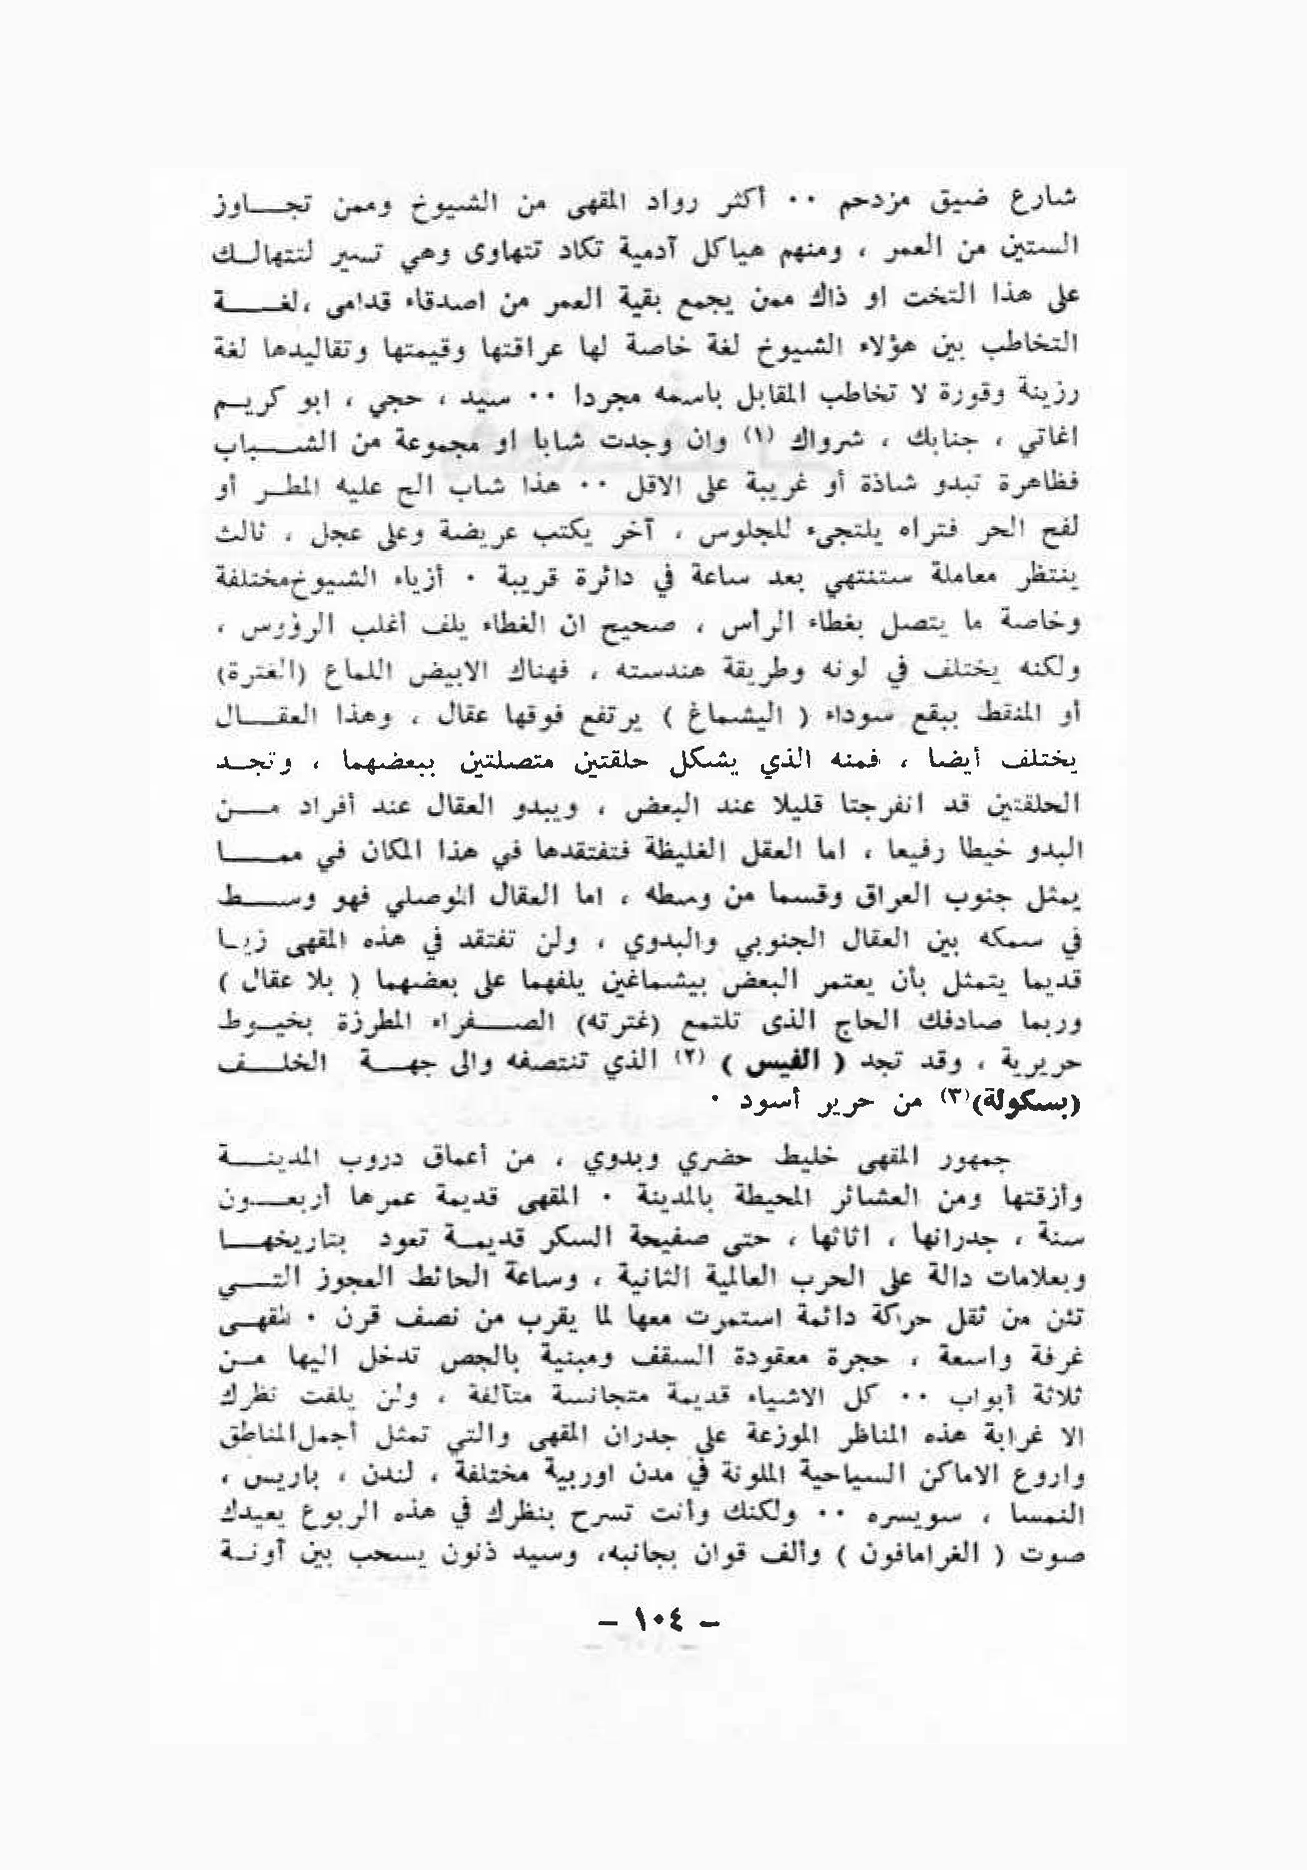 شارع ضيق مزدحم ٠٠ أكثر رواد المقهى من الشيوخ وممن تجاوز
الستين من العمر ، ومنهم هياكل آدمية تكاد تتهاوى وهي تسير لتتهالك
على هذا التخت او ذاك ممن يجمع بقية العمر من اصدقاء قدامى ،لغة
التخاطب بين هؤلاء الشيوخ لغة خاصة لها عراقتها وقيمتها وتقاليدها لغة
رزينة وقورة لا تخاطب المقابل باسمه مجردا ٠٠ سيد ، حجي ، ابو كريم
اغاتي ، جنابك ، شرواك (١) وان وجدت شابا او مجموعة من الشباب
فظاهرة تبدو شاذة أو غريبة على الاقل ٠٠ هذا شاب الح عليه المطر أو
لفح الحر فتراه يلتجىء للجلوس ، آخر يكتب عريضة وعلى عجل ، ثالث
ينتظر معاملة ستنتهي بعد ساعة في دائرة قريبة ٠ أزياء الشيوخ مختلفة
وخاصة ما يتصل بغطاء الرأس ، صحيح ان الغطاء يلف أغلب الرؤوس ،
ولكنه يختلف في لونه وطريقة هندسته ، فهناك الابيض اللماع (الغترة)
أو المنقط ببقع سوداء ( اليشماغ ) يرتفع فوقها عقال ، وهذا العقال
يختلف أيضا ، فمنه الذي يشكل حلقتين متصلتين ببعضهما ، وتجد
الحلقتين قد انفرجتا قليلا عند البعض ، ويبدو العقال عند أفراد من
البدو خيطا رفيعا ، اما العقل الغليظة فتفتقدها في هذا المكان في مما
يمثل جنوب العراق وقسما من وسطه ، اما العقال الموصلي فهو وسط
في سمكه بين العقال الجنوبي والبدوي ، ولن تفتقد في هذه المقهى زيا
قديما يتمثل بأن يعتمر البعض بيشماغين يلفهما على بعضهما ( بلا عقال )
وربما صادفك الحاج الذى تلتمع (غترته) الصفراء المطرزة بخيوط
حريرية ، وقد تجد ( الفيس ) (٢) الذي تنتصفه والى جهة الخلف
(بسكولة)(٣) من حرير أسود ٠
جمهور المقهى خليط حضري وبدوي ، من أعماق دروب المدينة
وأزقتها ومن العشائر المحيطة بالمدينة ٠ المقهى قديمة عمرها أربعون
سنة ، جدرانها ، اثاثها ، حتى صفيحة السكر قديمة تعود بتاريخها
وبعلامات دالة على الحرب العالمية الثانية ، وساعة الحائط العجوز التي
تئن من ثقل حركة دائمة استمرت معها لما يقرب من نصف قرن ٠ المقهى
غرفة واسعة ، حجرة معقودة السقف ومبنية بالجص تدخل اليها من
ثلاثة أبواب ٠٠ كل الاشياء قديمة متجانسة متآلفة ، ولن يلفت نظرك
الا غرابة هذه المناظر الموزعة على جدران المقهى والتي تمثل أجمل المناطق
واروع الاماكن السياحية الملونة في مدن اوربية مختلفة ، لندن ، باريس ،
النمسا ، سويسره ٠٠ ولكنك وأنت تسرح بنظرك في هذه الربوع يعيدك
صوت ( الغرامافون ) وألف قوان بجانبه، وسيد ذنون يسحب بين آونة
– ١٠٤ –